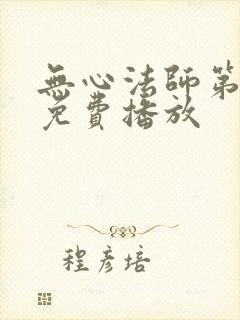 無心法師第
免費播放
程彥培